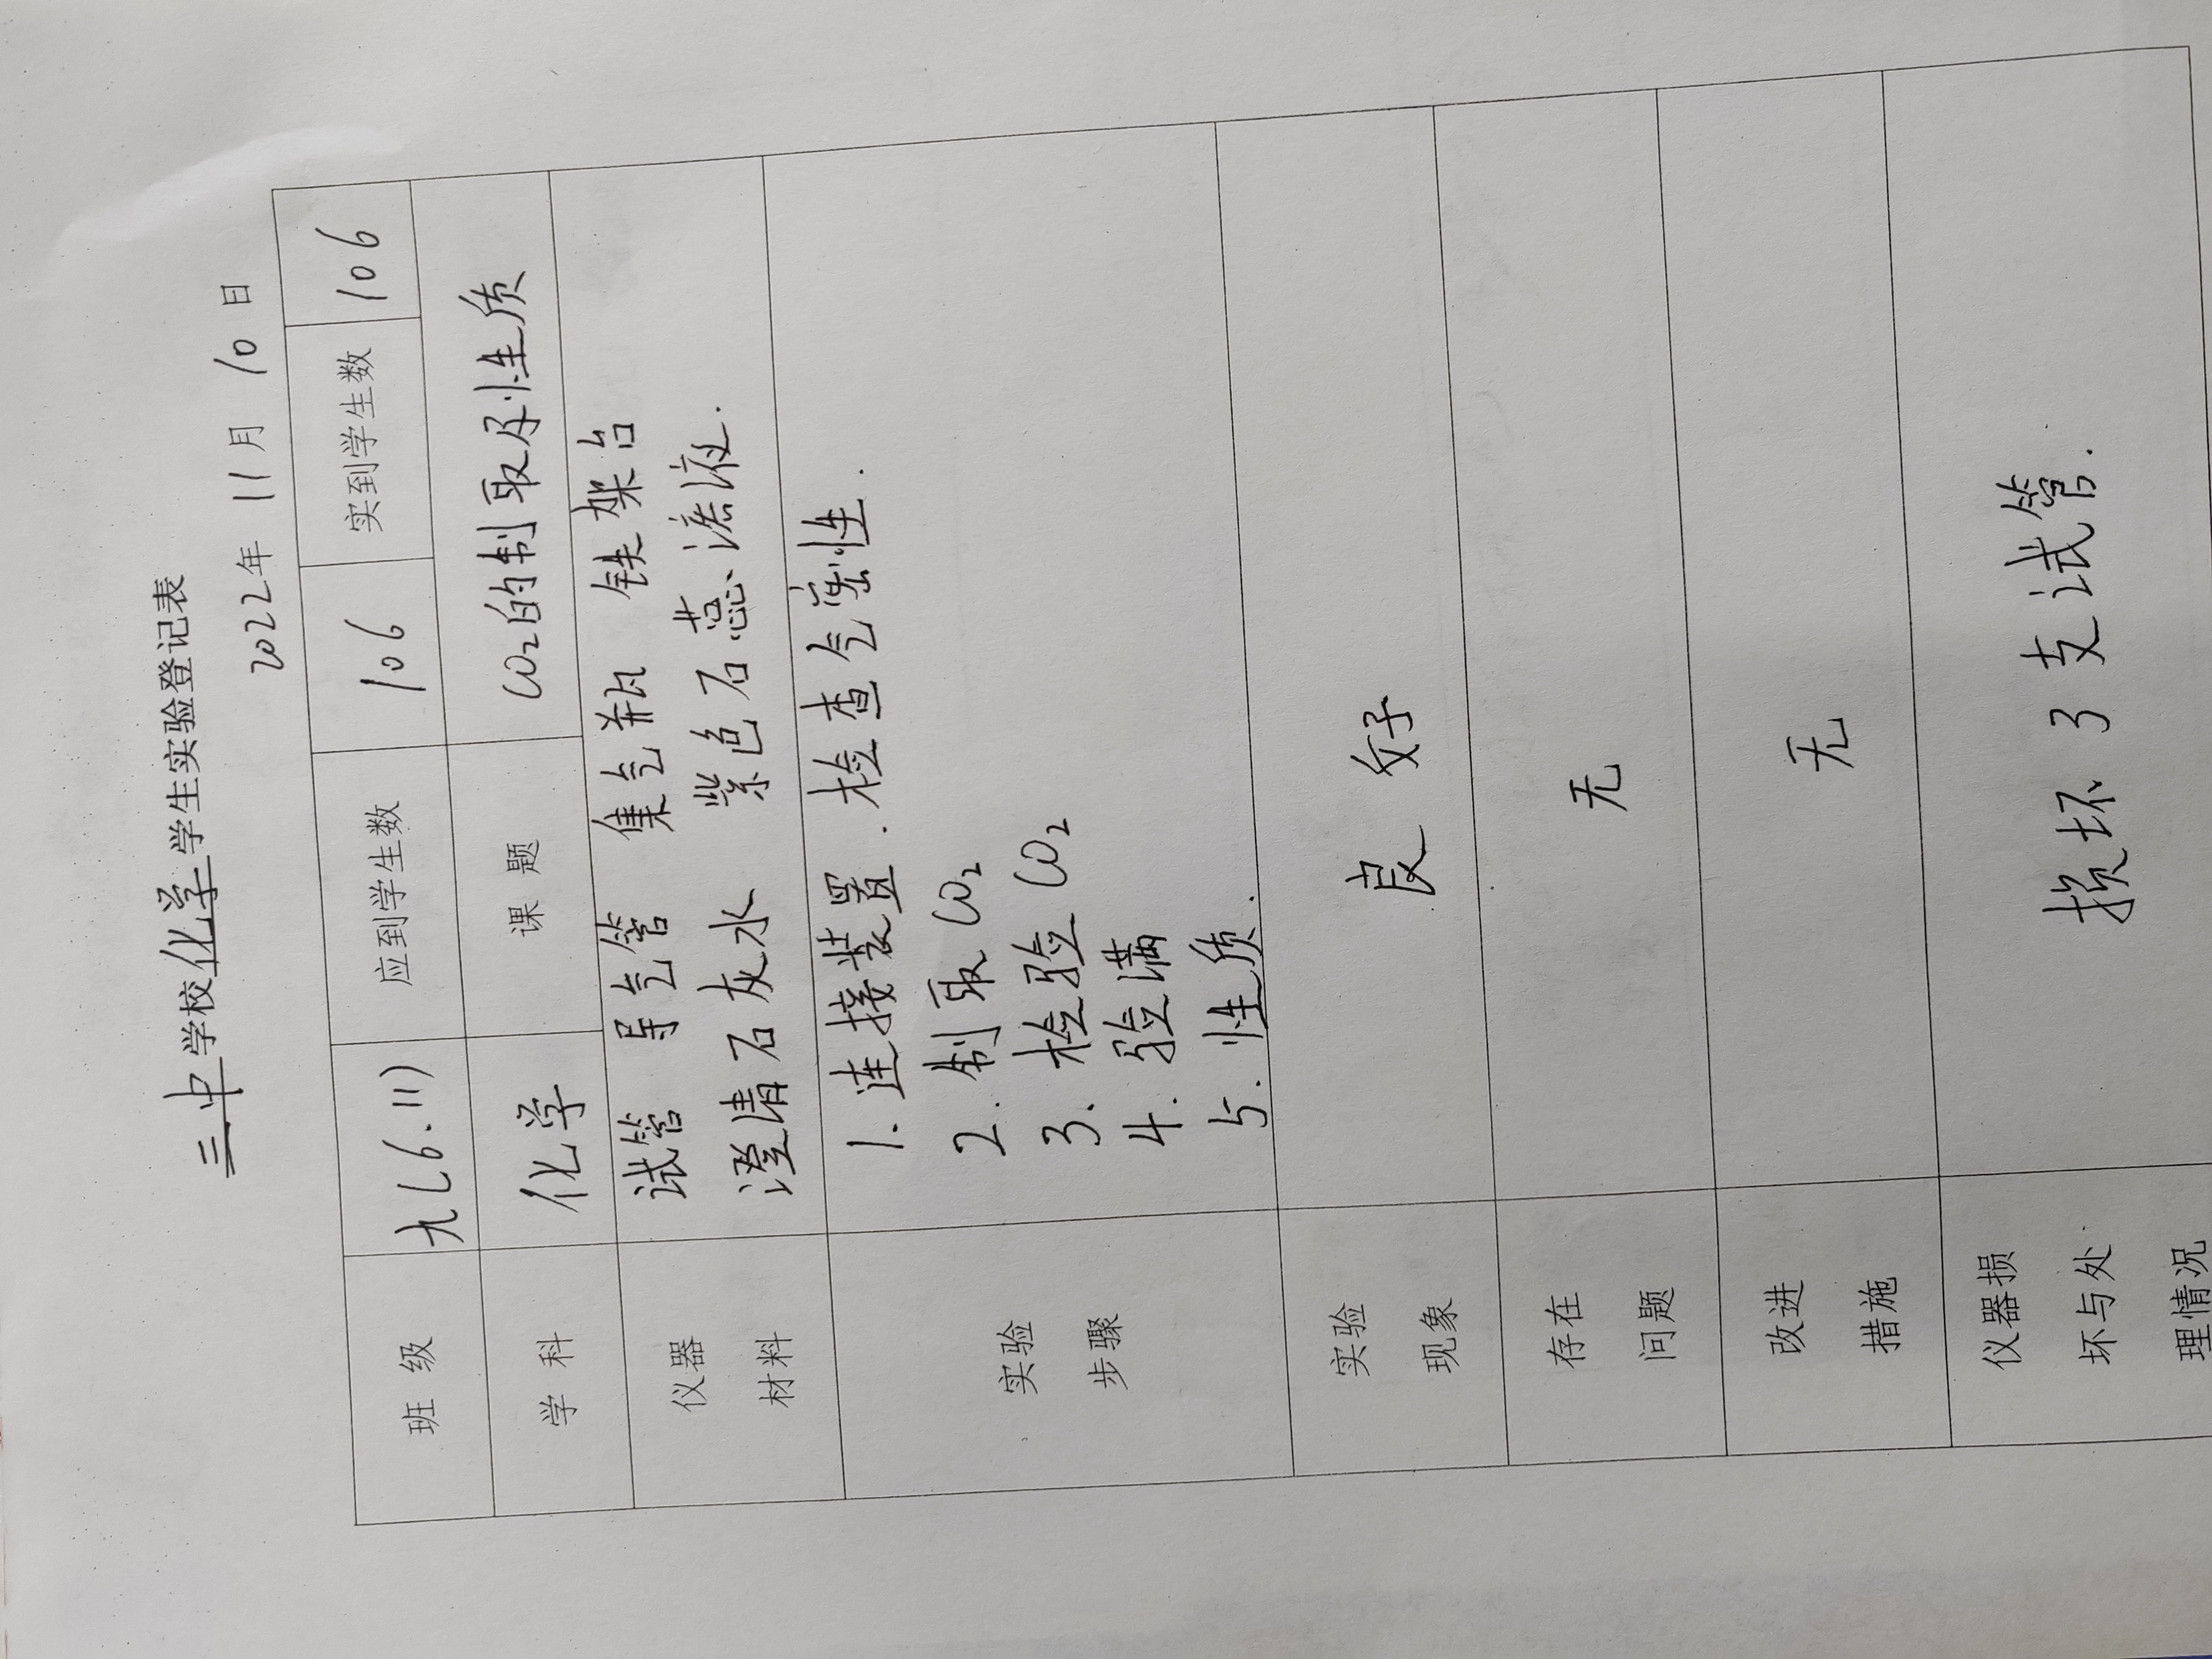 三中学校化学学生实验登记表
2022年 11月 10日
班 级 九(6.11) 应到学生数 106 实到学生数 106
学 科 化学 课 题 CO₂的制取及性质
仪器 试管 导气管 集气瓶 铁架台
材料 澄清石灰水 紫色石蕊滤液.
1. 连接装置. 检查气密性.
2. 制取CO₂
实验 3. 检验CO₂
步骤 4. 验满
5. 性质.
实验
现象 良好
存在
问题 无
改进
措施 无
仪器损
坏与处 损坏3支试管.
理情况